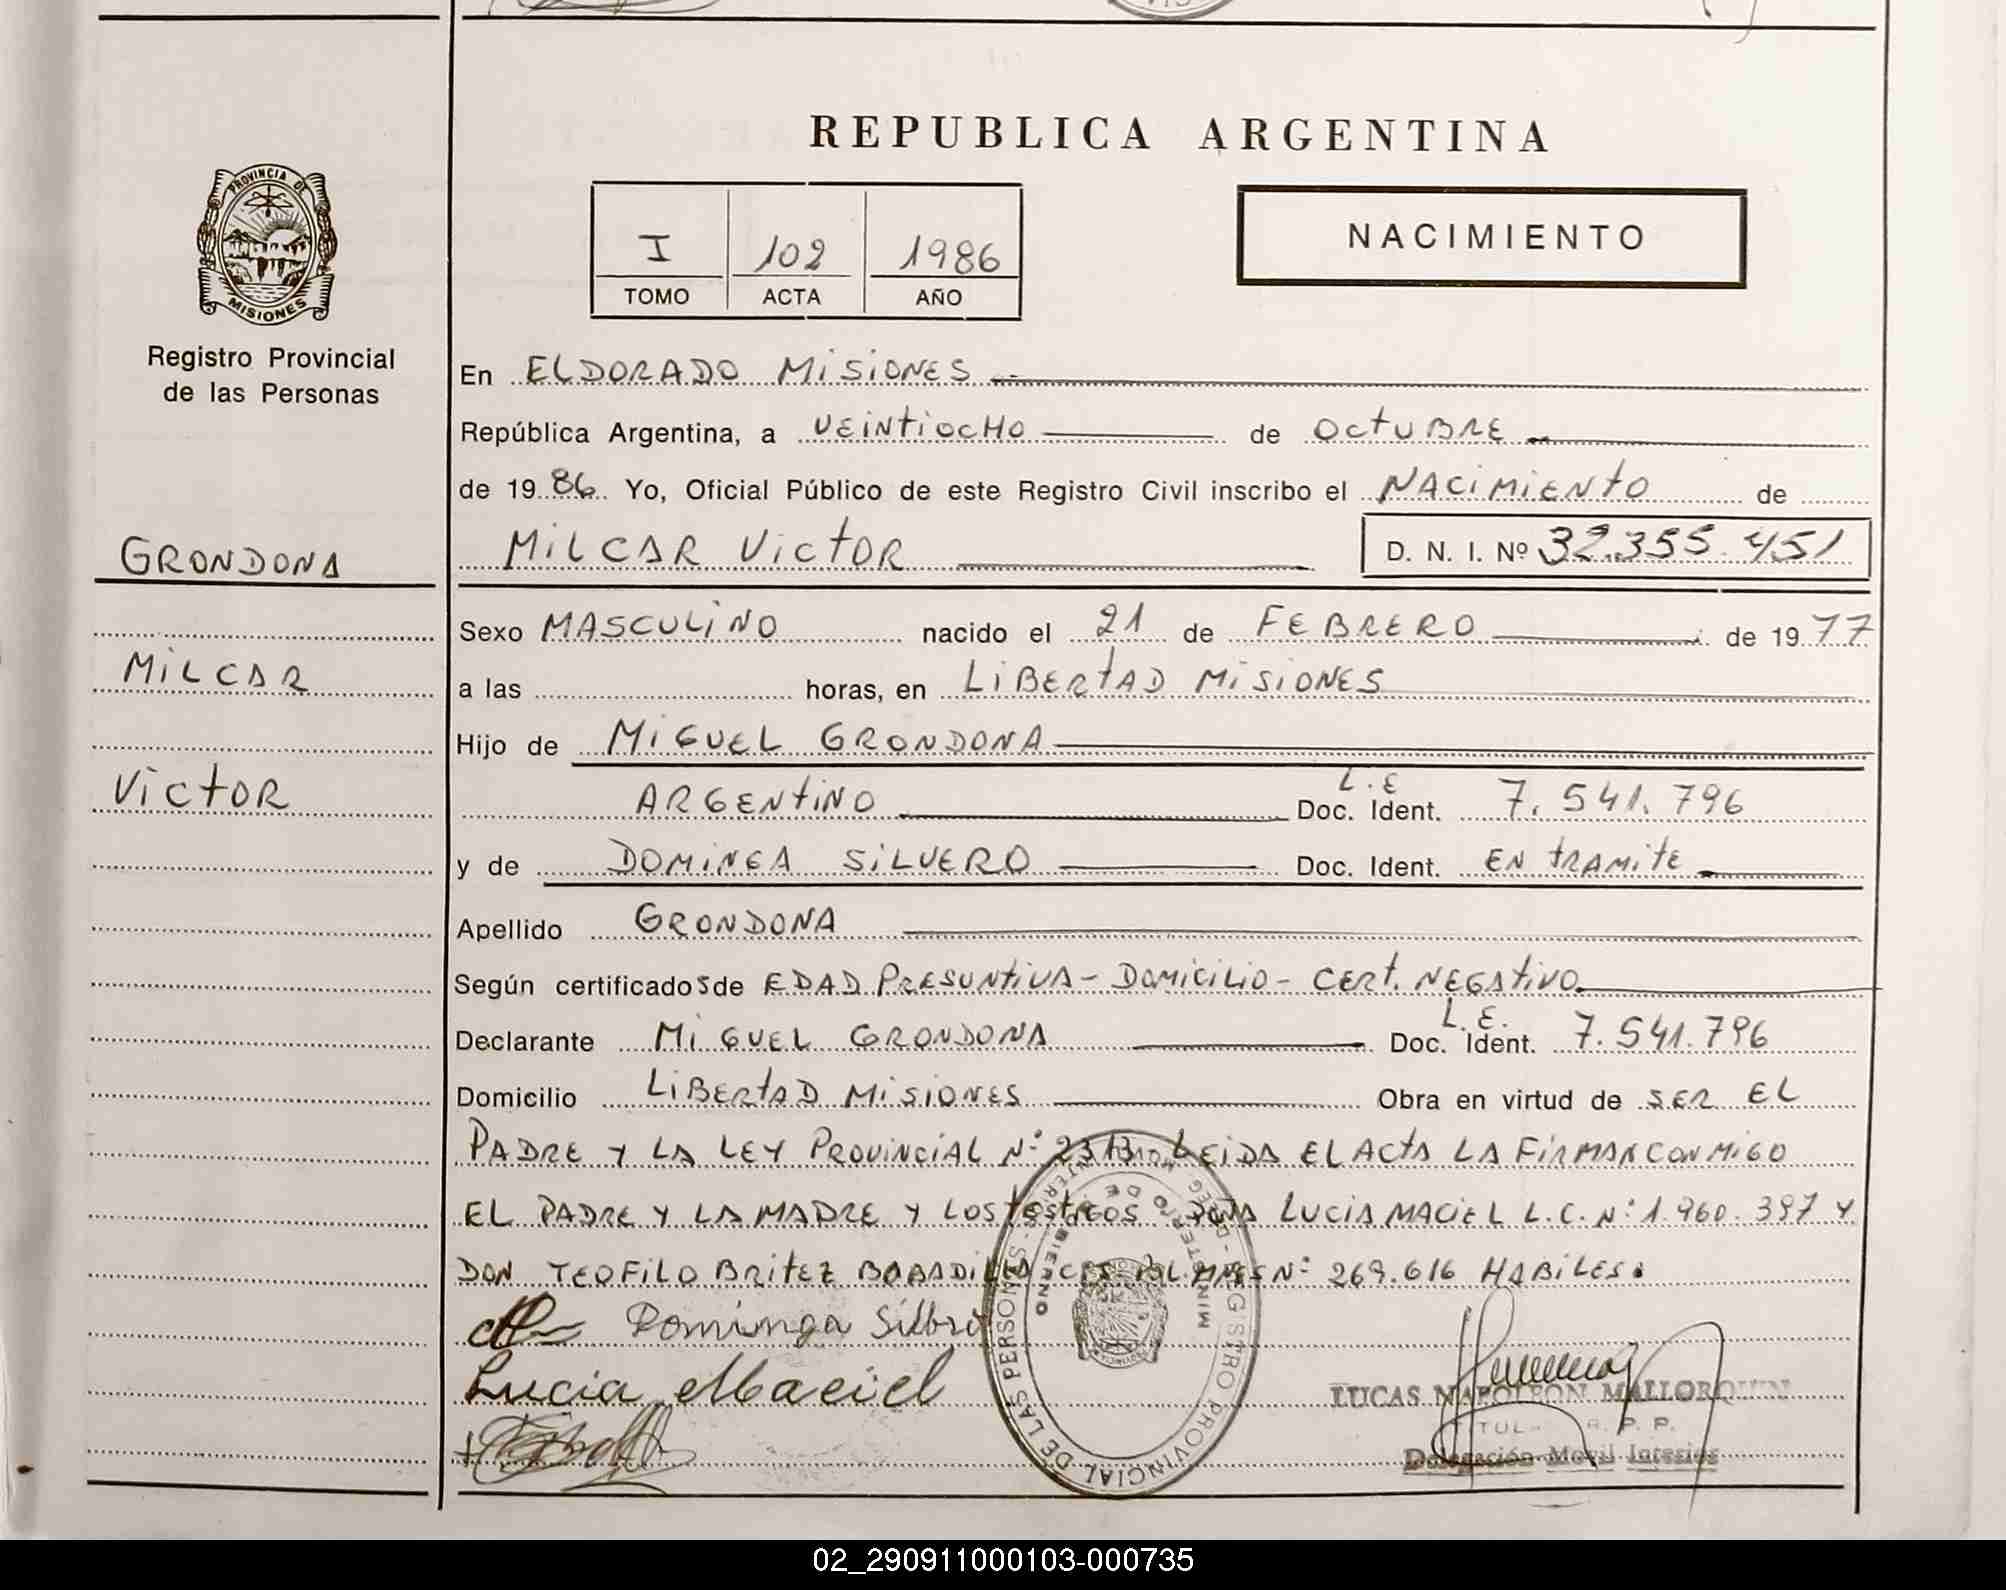 REPUBLICA ARGENTINA
PROVINCIA DE
MISIONES
Registro Provincial
de las Personas
I 102 1986
TOMO ACTA AÑO
NACIMIENTO
En ELDORADO MISIONES
República Argentina, a VEINTIOCHO de OCTUBRE
de 1986 Yo, Oficial Público de este Registro Civil inscribo el NACIMIENTO de
MILCAR VICTOR D. N. I. Nº 32.355.451
GRONDONA
MILCAR
VICTOR
Sexo MASCULINO nacido el 21 de FEBRERO de 1977
a las horas, en LIBERTAD MISIONES
Hijo de MIGUEL GRONDONA
ARGENTINO L.E Doc. Ident. 7.541.796
y de DOMINGA SILVERO Doc. Ident. EN TRAMITE
Apellido GRONDONA
Según certificados de EDAD PRESUNTIVA - DOMICILIO - CERT. NEGATIVO
Declarante MIGUEL GRONDONA L.E. Doc. Ident. 7.541.796
Domicilio LIBERTAD MISIONES Obra en virtud de SER EL
PADRE Y LA LEY PROVINCIAL Nº 2313. LEIDA EL ACTA LA FIRMAN CONMIGO
EL PADRE Y LA MADRE Y LOS TESTIGOS DOÑA LUCIA MACIEL L.C. Nº 1.960.397 Y
DON TEOFILO BRITEZ BOBADILLA Nº 269.616 HABILES.
Dominga Silbero
Lucia Maciel
REGISTRO PROVINCIAL DE LAS PERSONAS
MINISTERIO DE GOBIERNO
LUCAS NAPOLEON MALLORQUIN
Delegación Movil Interior
02_290911000103-000735